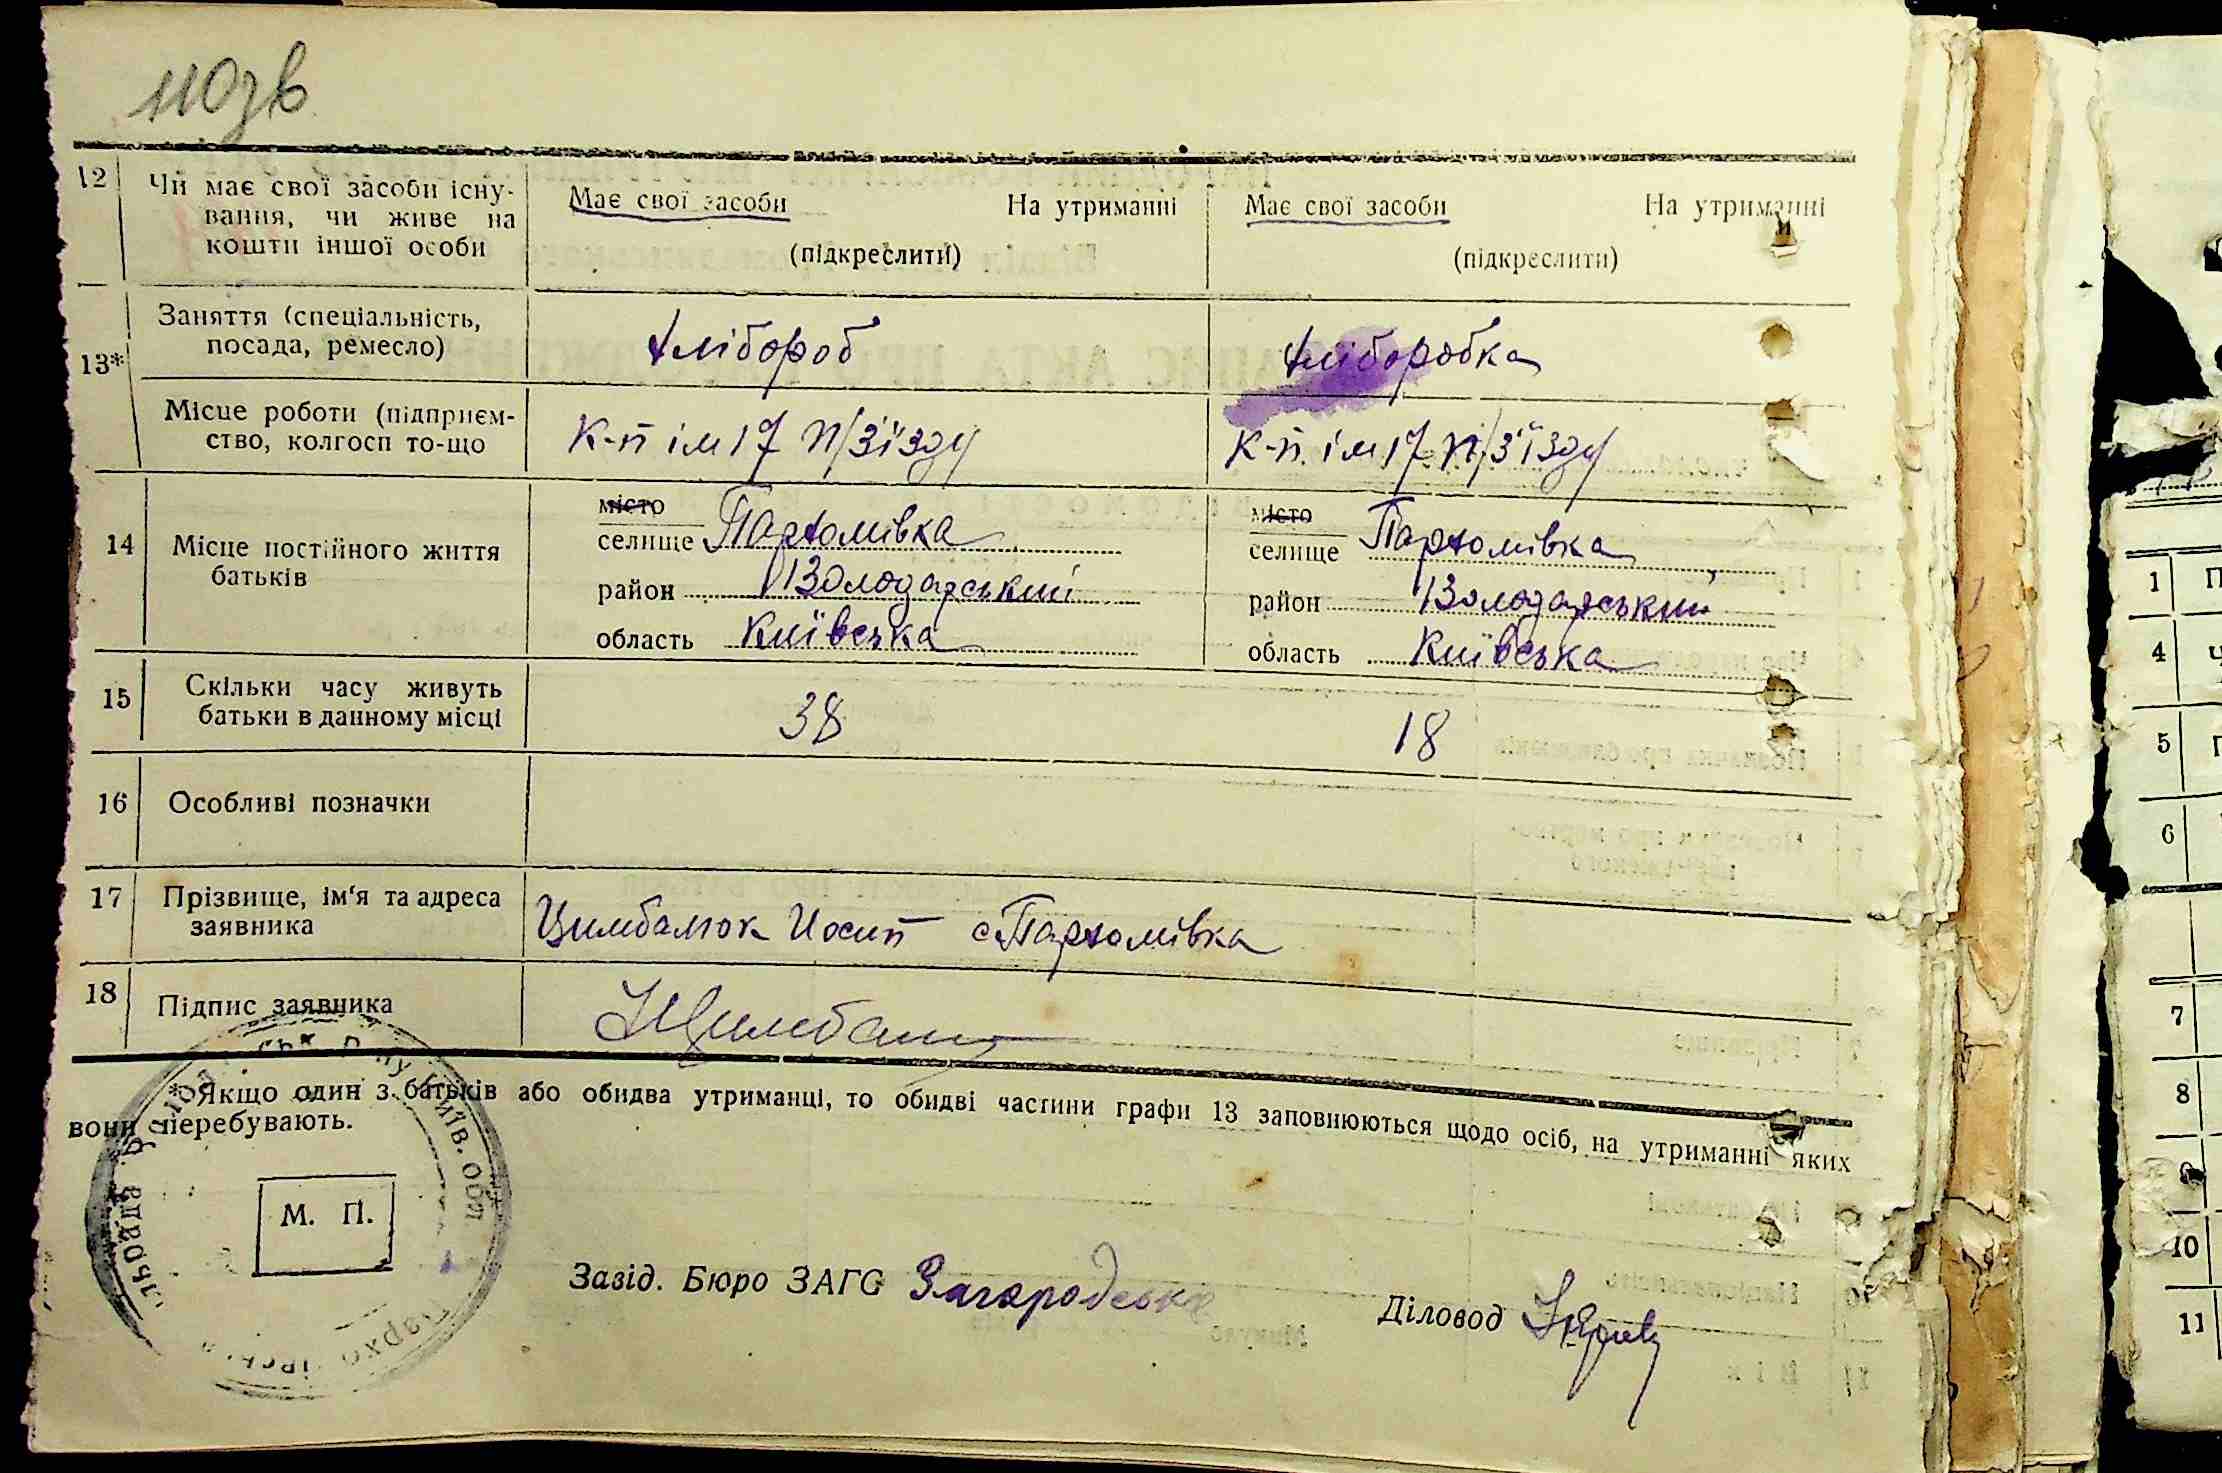 110зв
12 Чи має свої засоби існу-
вання, чи живе на
кошти іншої особи
Має свої засоби На утриманні
(підкреслити)
Має свої засоби На утриманні
(підкреслити)
13*
Заняття (спеціальність,
посада, ремесло)
хлібороб
хліборобка
Місце роботи (підприєм-
ство, колгосп то-що
к-п ім 17 п/з'їзду
к-п. ім 17 п/з'їзду
14 Місце постійного життя
батьків
місто
селище Пархомівка
район Володарський
область Київська
місто
селище Пархомівка
район Володарський
область Київська
15 Скільки часу живуть
батьки в данному місці
38
18
16 Особливі позначки
17 Прізвище, ім'я та адреса
заявника
Цимбалюк Иосип с Пархомівка
18 Підпис заявника
*Якщо один з батьків або обидва утриманці, то обидві частини графи 13 заповнюються щодо осіб, на утриманні яких
вони перебувають.
М. П.
Київ. обл
Завід. Бюро ЗАГС Загородська
Діловод
1 П
4 Ч
5
6
7
8
9
10
11